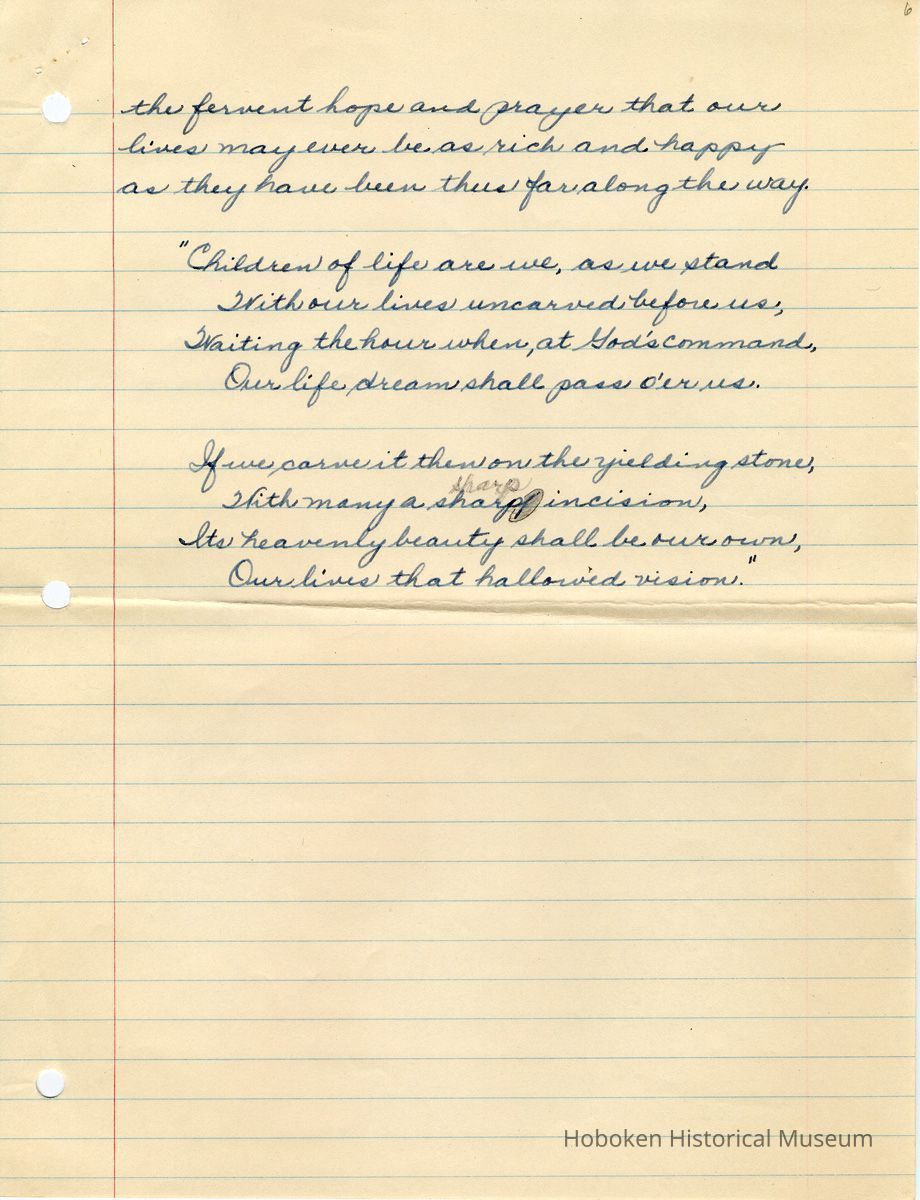 6
the fervent hope and prayer that our
lives may ever be as rich and happy
as they have been thus far along the way.
"Children of life are we, as we stand
With our lives uncarved before us,
Waiting the hour when, at God's command,
Our life dream shall pass o'er us.
If we carve it then on the yielding stone,
sharp
With many a sharp incision,
Its heavenly beauty shall be our own,
Our lives that hallowed vision."
Hoboken Historical Museum